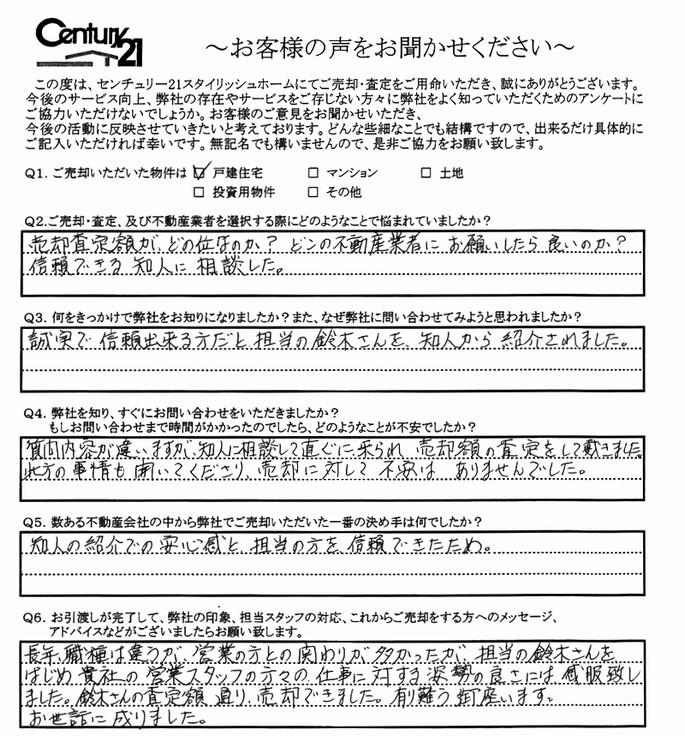 Century 21
～お客様の声をお聞かせください～
この度は、センチュリー21スタイリッシュホームにてご売却・査定をご用命いただき、誠にありがとうございます。
今後のサービス向上、弊社の存在やサービスをご存じない方々に弊社をよく知っていただくためのアンケートに
ご協力いただけないでしょうか。お客様のご意見をお聞かせいただき、
今後の活動に反映させていきたいと考えております。どんな些細なことでも結構ですので、出来るだけ具体的に
ご記入いただければ幸いです。無記名でも構いませんので、是非ご協力をお願い致します。
Q1. ご売却いただいた物件は ☑ 戸建住宅 □ マンション □ 土地
□ 投資用物件 □ その他
Q2.ご売却・査定、及び不動産業者を選択する際にどのようなことで悩まれていましたか？
売却査定額が、どの位なのか？ どこの不動産業者に お願いしたら 良いのか？
信頼できる 知人に 相談した。
Q3. 何をきっかけで弊社をお知りになりましたか？また、なぜ弊社に問い合わせてみようと思われましたか？
誠実で 信頼出来る方だと 担当の 鈴木さんを、知人から 紹介されました。
Q4. 弊社を知り、すぐにお問い合わせをいただきましたか？
もしお問い合わせまで時間がかかったのでしたら、どのようなことが不安でしたか？
質問内容が違いますが、知人に相談して直ぐに来られ 売却額の査定をして戴きました。
此方の事情も 聞いてくださり、売却に対して 不安は ありませんでした。
Q5. 数ある不動産会社の中から弊社でご売却いただいた一番の決め手は何でしたか？
知人の紹介での 安心感と、担当の方を 信頼できたため。
Q6. お引渡しが完了して、弊社の印象、担当スタッフの対応、これからご売却をする方へのメッセージ、
アドバイスなどがございましたらお願い致します。
長年、職種は違うが、営業の方との 関わりが 多かったが、担当の鈴木さんを
はじめ 貴社の 営業スタッフの方々の 仕事に対する 姿勢の良さには 感服致し
ました。鈴木さんの査定額 通り、売却できました。有難う 御座います。
お世話に 成りました。